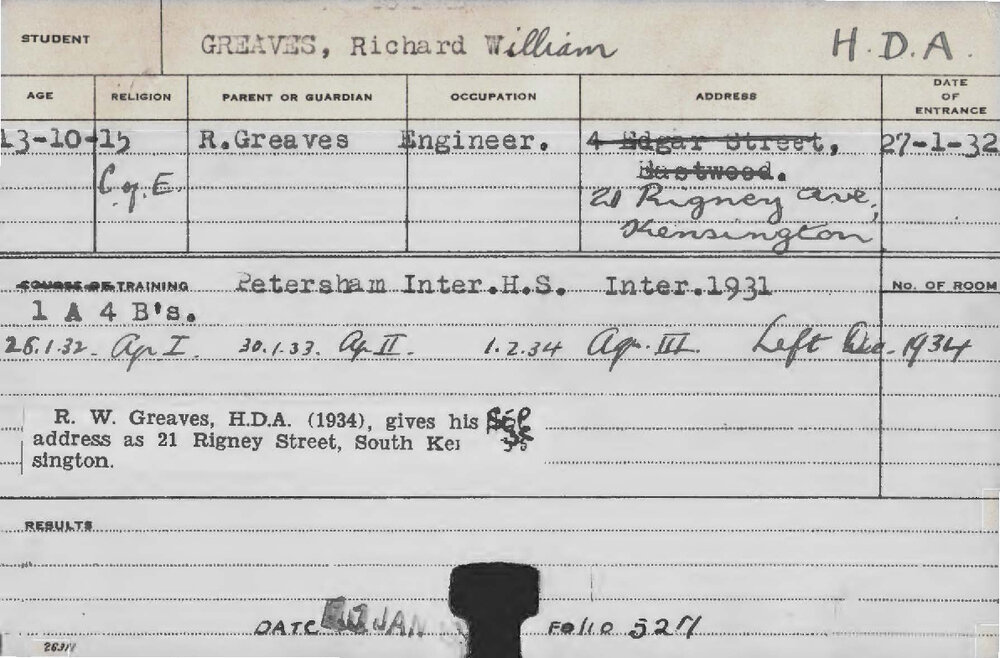 STUDENT GREAVES, Richard William H.D.A.
AGE RELIGION PARENT OR GUARDIAN OCCUPATION ADDRESS DATE OF ENTRANCE
13-10-15 R.Greaves Engineer. 4 Edgar Street, 27-1-32
Eastwood.
C. of E. 21 Rigney ave,
Kensington
COURSE OF TRAINING Petersham Inter.H.S. Inter.1931 No. OF ROOM
1 A 4 B's.
26.1.32. Ag I. 30.1.33. Ag II. 1.2.34 Agr. III. Left Dec. 1934
R. W. Greaves, H.D.A. (1934), gives his
address as 21 Rigney Street, South Ke
sington.
RESULTS
DATE JAN FOLIO 527